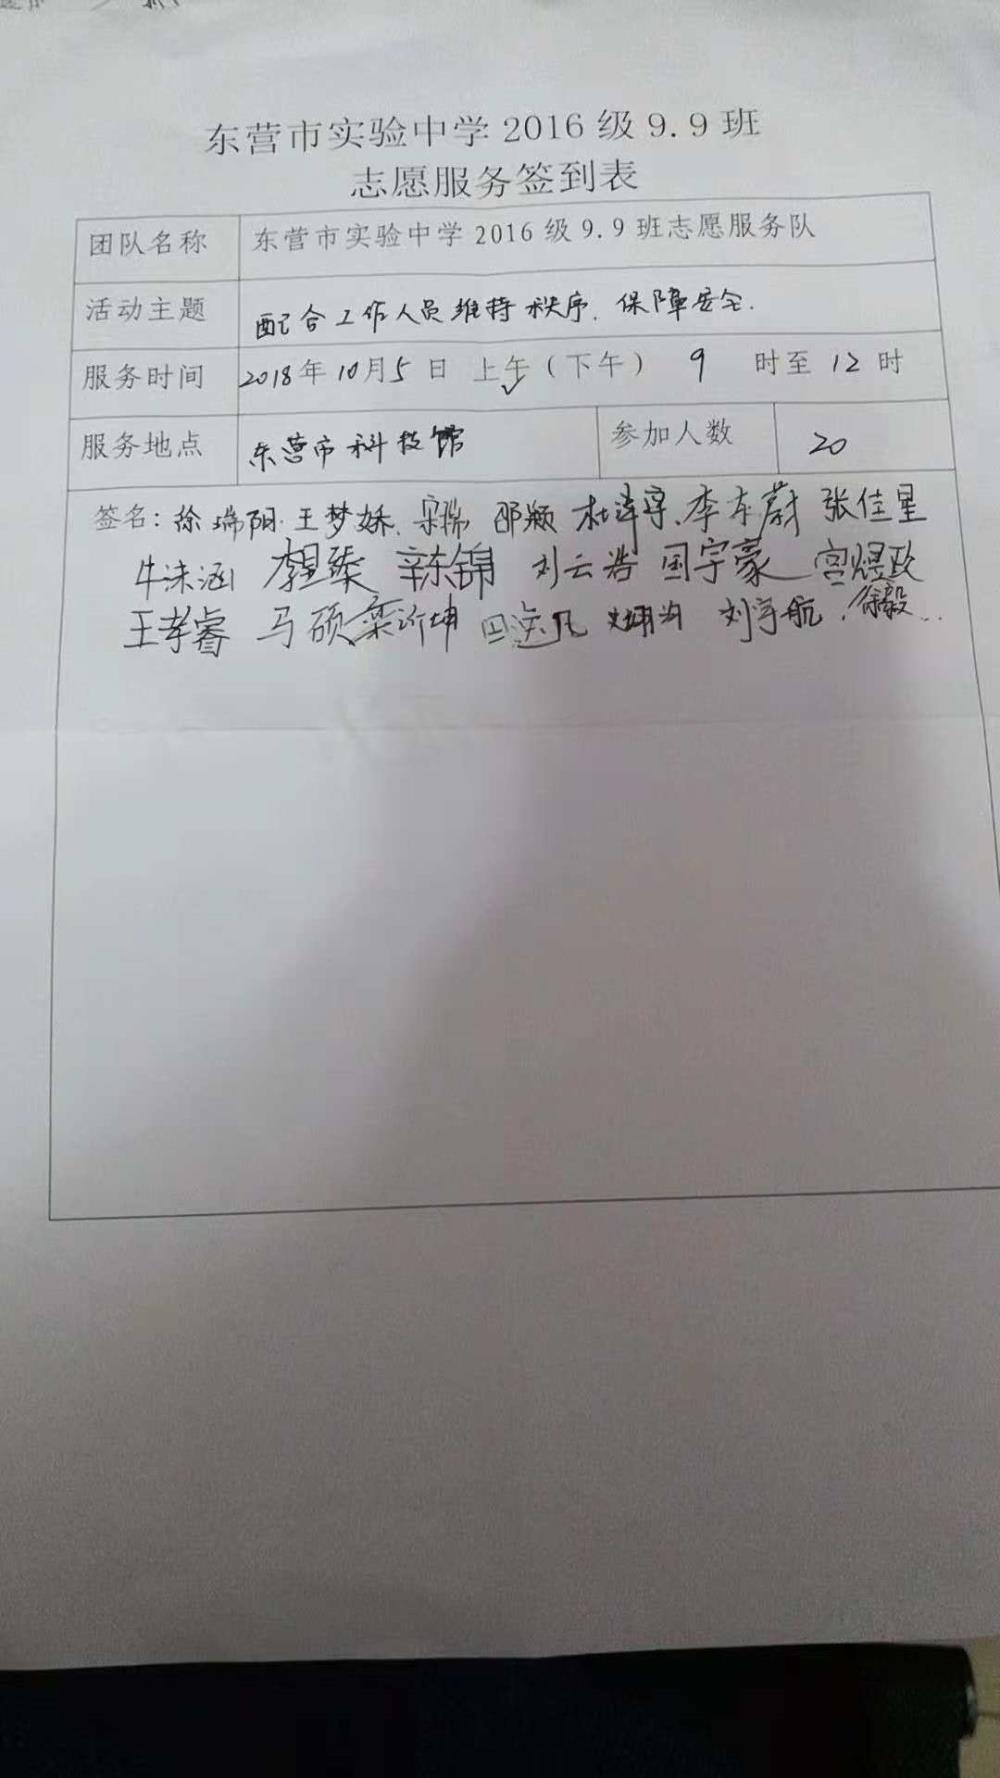 东营市实验中学2016级9.9班
志愿服务签到表
团队名称 东营市实验中学2016级9.9班志愿服务队
活动主题 配合工作人员维持秩序、保障安全.
服务时间 2018年10月5日 上午(下午) 9 时至12时
服务地点 东营市科技馆 参加人数 20
签名: 徐瑞阳 王梦娇 宋瑞 邵颖 李东蔚 张佳星
牛沫涵 辛东锦 刘云浩 国宇豪 宫煜政
王孝睿 马硕 栾沂坤 刘宇航 徐毅